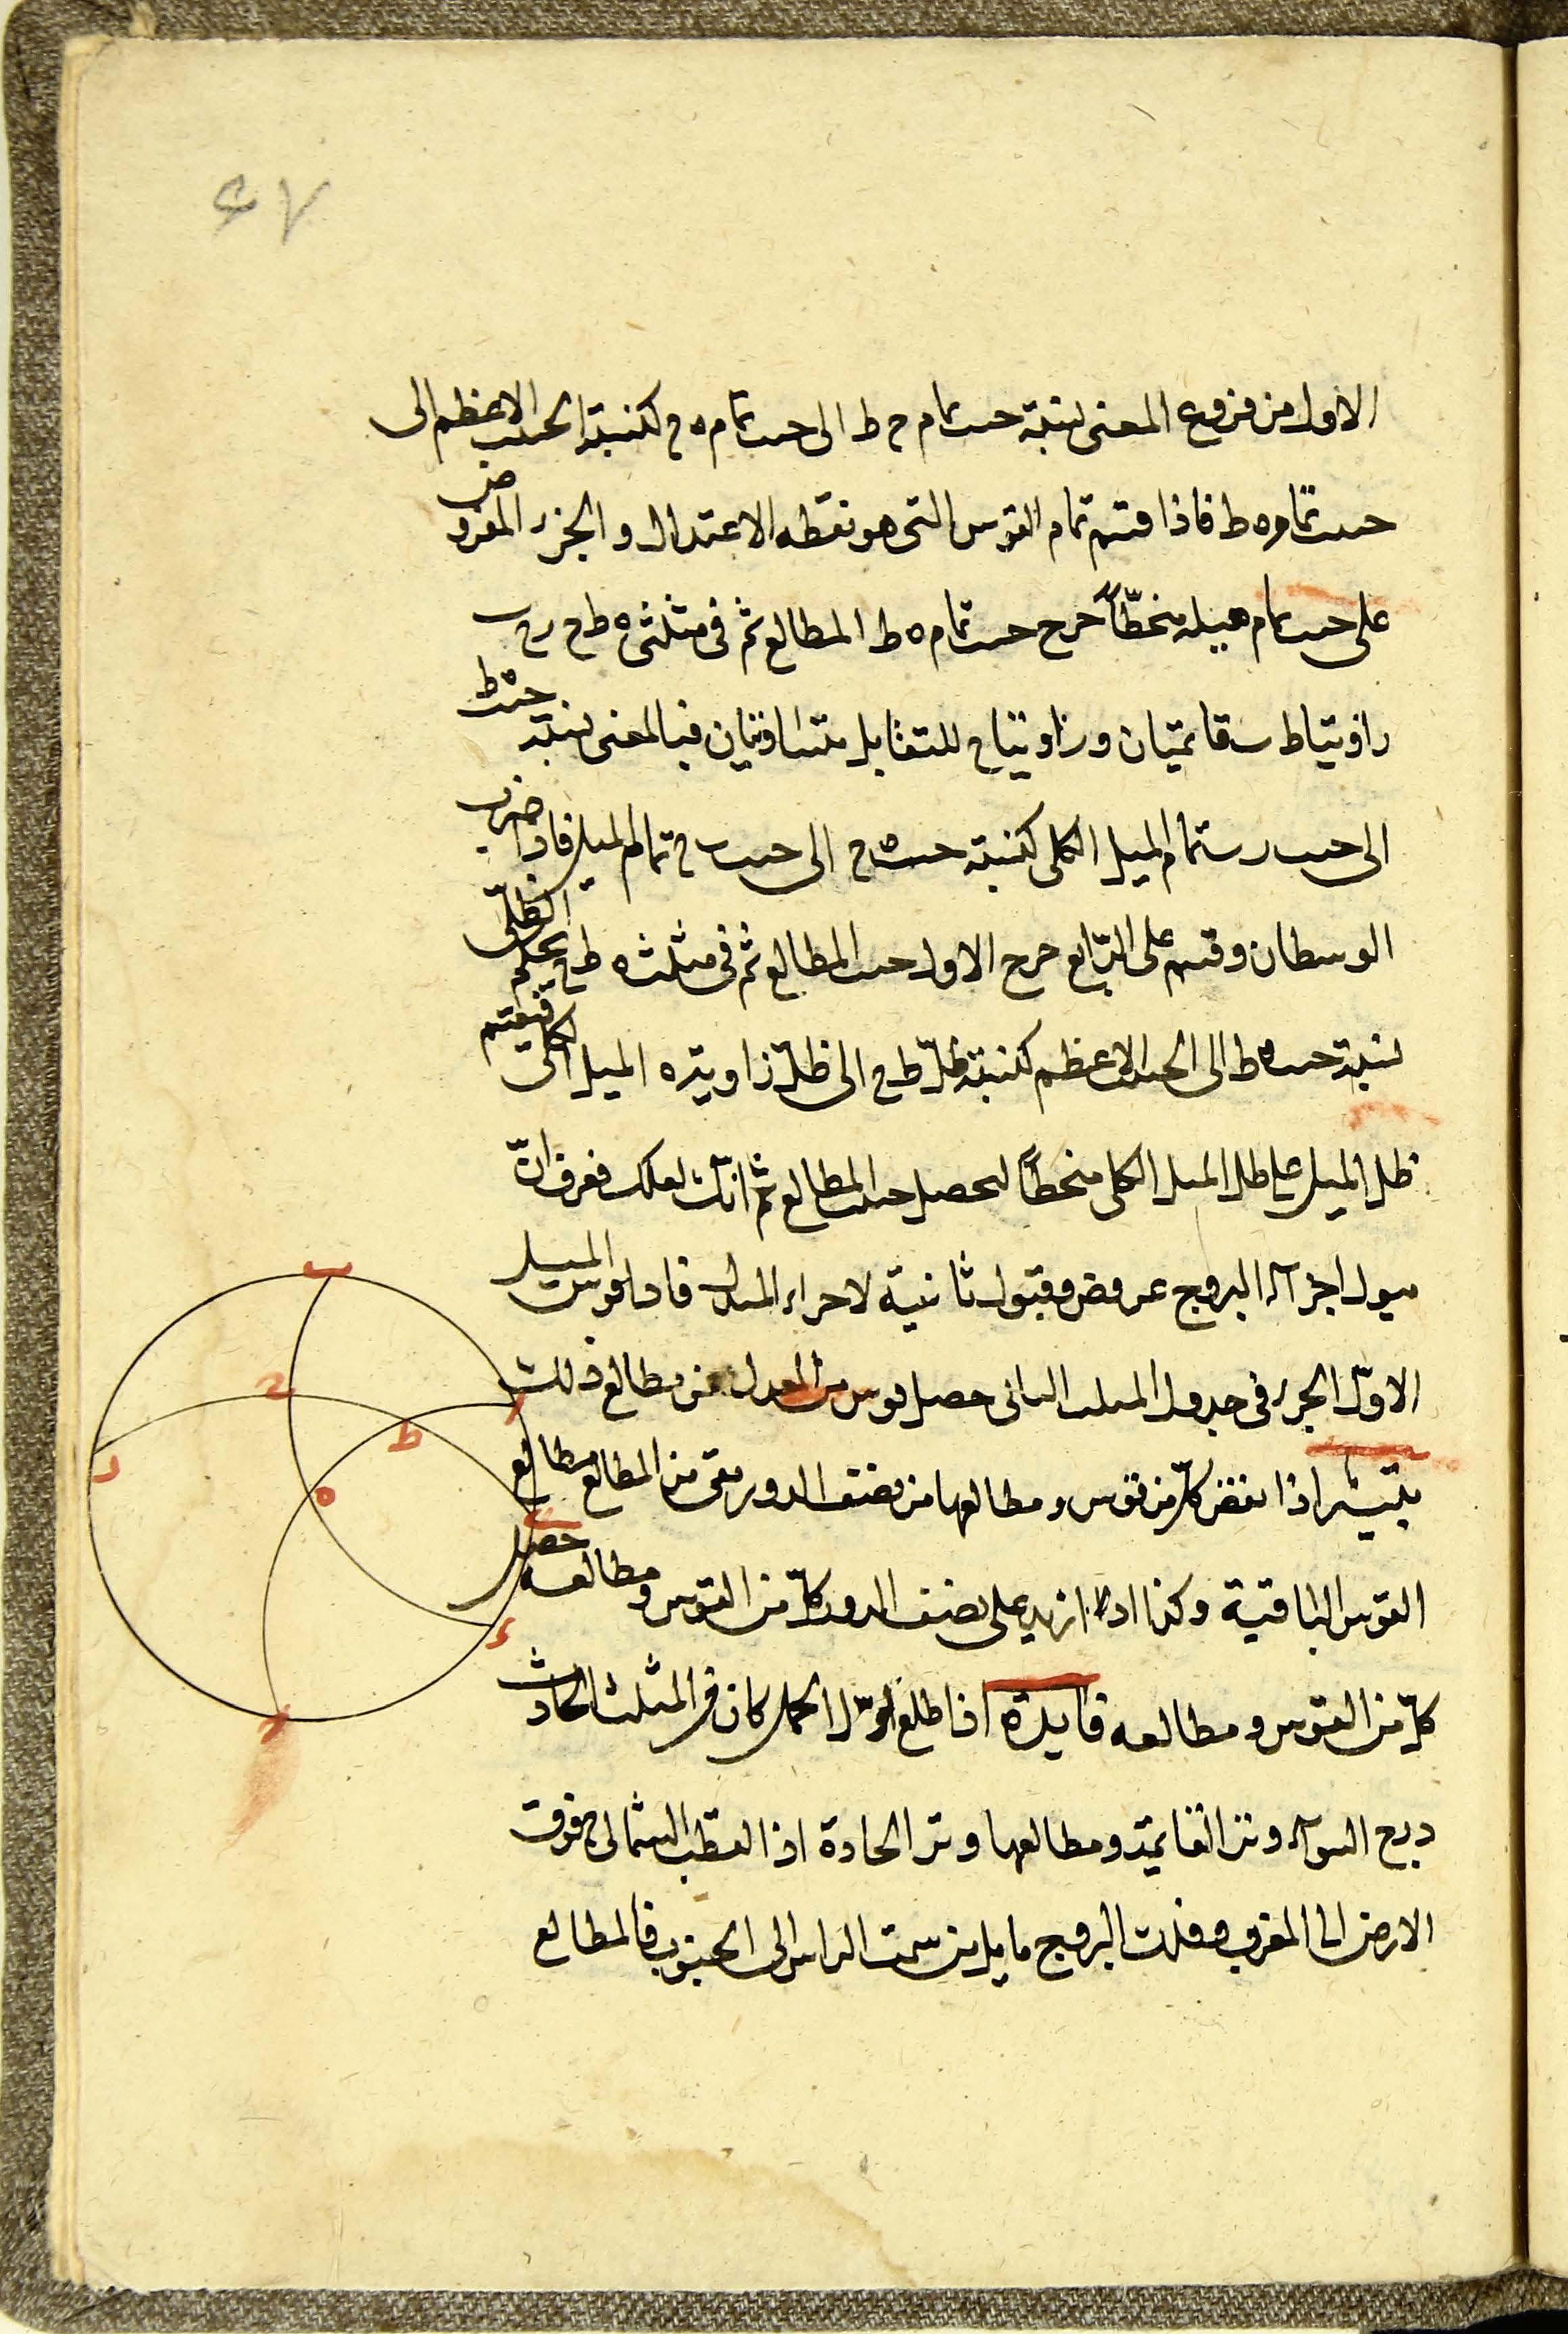 ٤٧
الاول من فروع المغنى نسبة حىب تمام ح ط الى حىب تمام ه ح كنسبة الجىب الاعظم الى
حىب تمام ه ط فاذا قسم تمام القوس التى هو نقطه الاعتدال و الجزء المفروض
على حىب تمام ميله منحطّاً خرج حىب تمام ه ط المطالع ثم فى مثلثى ه ط ح ر ح ب
زاويتا ط ب قائمتيان و زاويتا ح للتقابل متساويتان فبالمغنى نسبة حىب ه ط
الى حىب ر ب تمام الميل الكلى كنسبة حىب ه ح الى حىب ب ح تمام الميل فاذا ضرب
الوسطان و قسم على الرّابع خرج الاول حىب المطالع ثم فى مثلث ه ط ح بحكم الظلّى
نسبة حىب ه ط الى الجىب الاعظم كنسبة ظلّ ط ح الى ظلّ زاوية ه الميل الكلى فيقسم
ظل الميل على ظل الميل الكلى منحطاً ليحصل حىب المطالع ثم انك لعلك تعرف انّ
ميول اجزآء البروج عروض و ميول ثانية لاجزاء المعدل فاذا قوس الميل
الاوّل الجزء فى جدول الميل الثانى حصل قوس من المعدل من مطالع ذلك
اذا نقص كلّ من قوس و مطالعها من نصف الدور بقى من المطالع مطالع
القوس الباقية و كذا اذا ازيد على نصف الدور كلّ من القوس و مطالعه حصل
كلّ من القوس و مطالعه فايدة اذا طلع اوّل الحمل كان فى المثلث الحادث
درج السوآء وتر القايمة و مطالعها وتر الحادة اذ القطب الشمالى فوق
الارض الى المغرب و فلك البروج مايل من سمت الراس الى الجنوب فالمطالع
ب
ا
ح
ط
ر
ه
ء